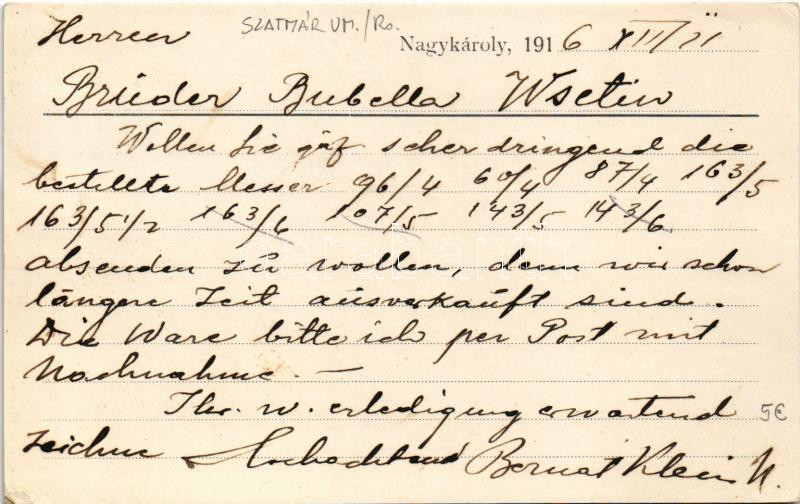 SZATMÁR VM./Ro.
Herren
Nagykároly, 1916 XII/11
Brüder Bubella Wsetin
Wollen Sie gäf seher dringend die
bestellte Messer 96/4 60/4 87/4 163/5
163/5 1/2 163/6 107/5 143/5 143/6
absenden zu wollen, denn wir schon
längere Zeit ausverkauft sind.
Die Ware bitte ich per Post mit
Nachnahme. —
Ihr. w. erledigung erwartend 5€
zeichne Hochachtend Bernat Klein N.